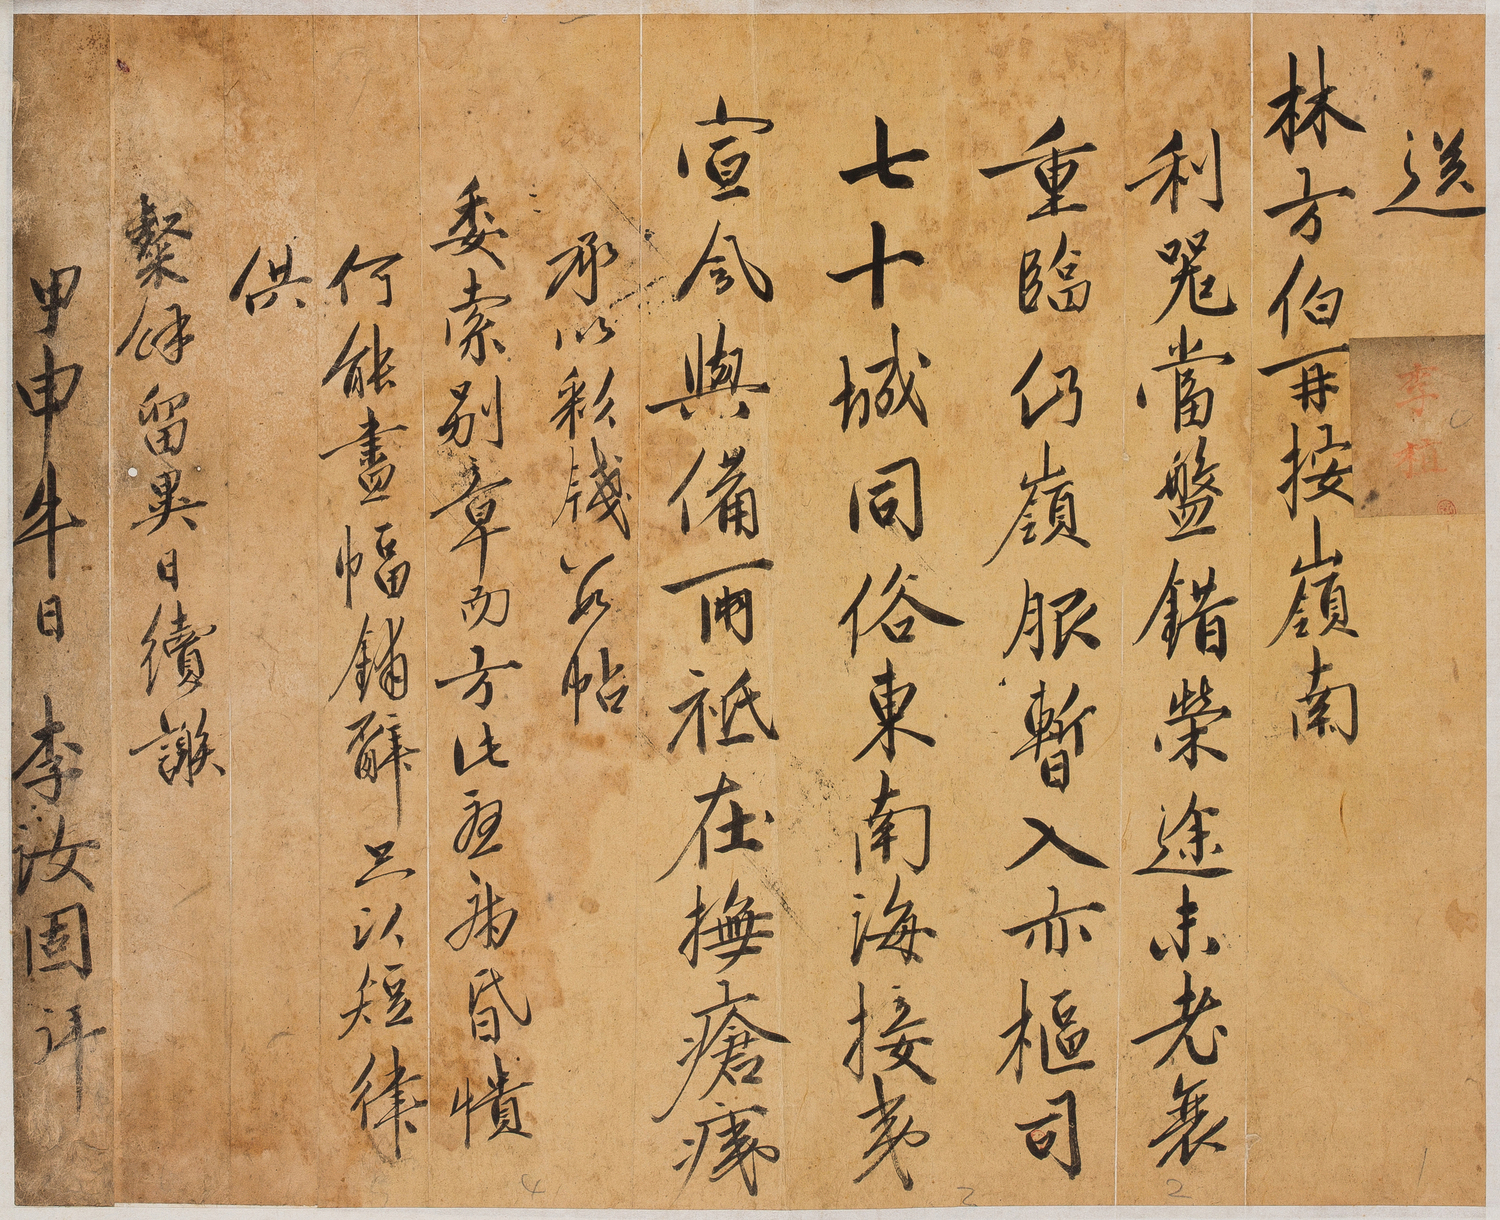 送
林方伯再按嶺南
利器當盤錯榮途未老衰
重臨仍嶺服暫入亦樞司
七十城同俗東南海接夷
宣風與備雨祗在撫瘡痍
承以彩牋帖
委索別章而方此病昏憒
何能盡幅鋪辭只以短律
供
粲餘留異日續
甲申午日 李汝固拜
李植